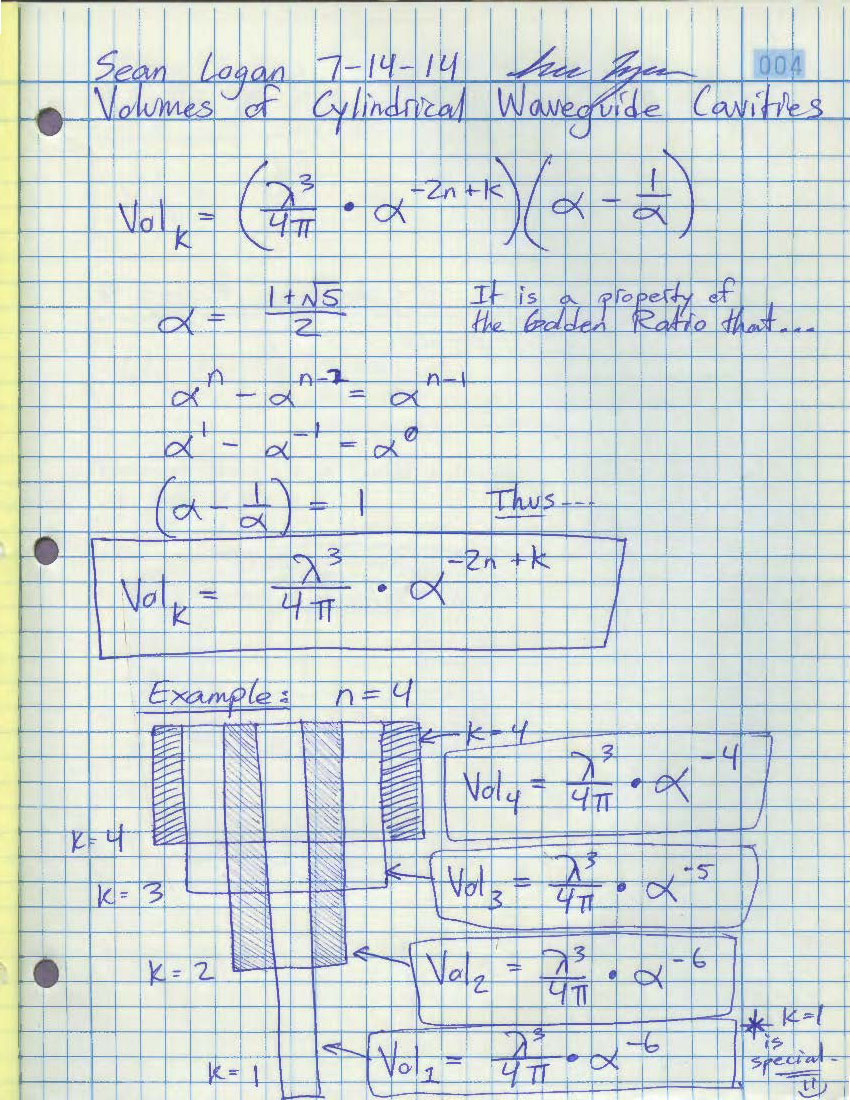 Sean Logan 7-14-14
004
Volumes of Cylindrical Waveguide Cavities
Vol_k = (λ³/4π • α^(-2n+k)) (α - 1/α)
α = (1+√5)/2
It is a property of
the Golden Ratio that...
α^n - α^(n-2) = α^(n-1)
α^1 - α^(-1) = α^0
(α - 1/α) = 1 Thus....
Vol_k = λ³/4π • α^(-2n+k)
Example: n=4
k=4
Vol_4 = λ³/4π • α^(-4)
k=4
Vol_3 = λ³/4π • α^(-5)
k=3
Vol_2 = λ³/4π • α^(-6)
k=2
* k=1
is
special.
Vol_1 = λ³/4π • α^(-6)
k=1